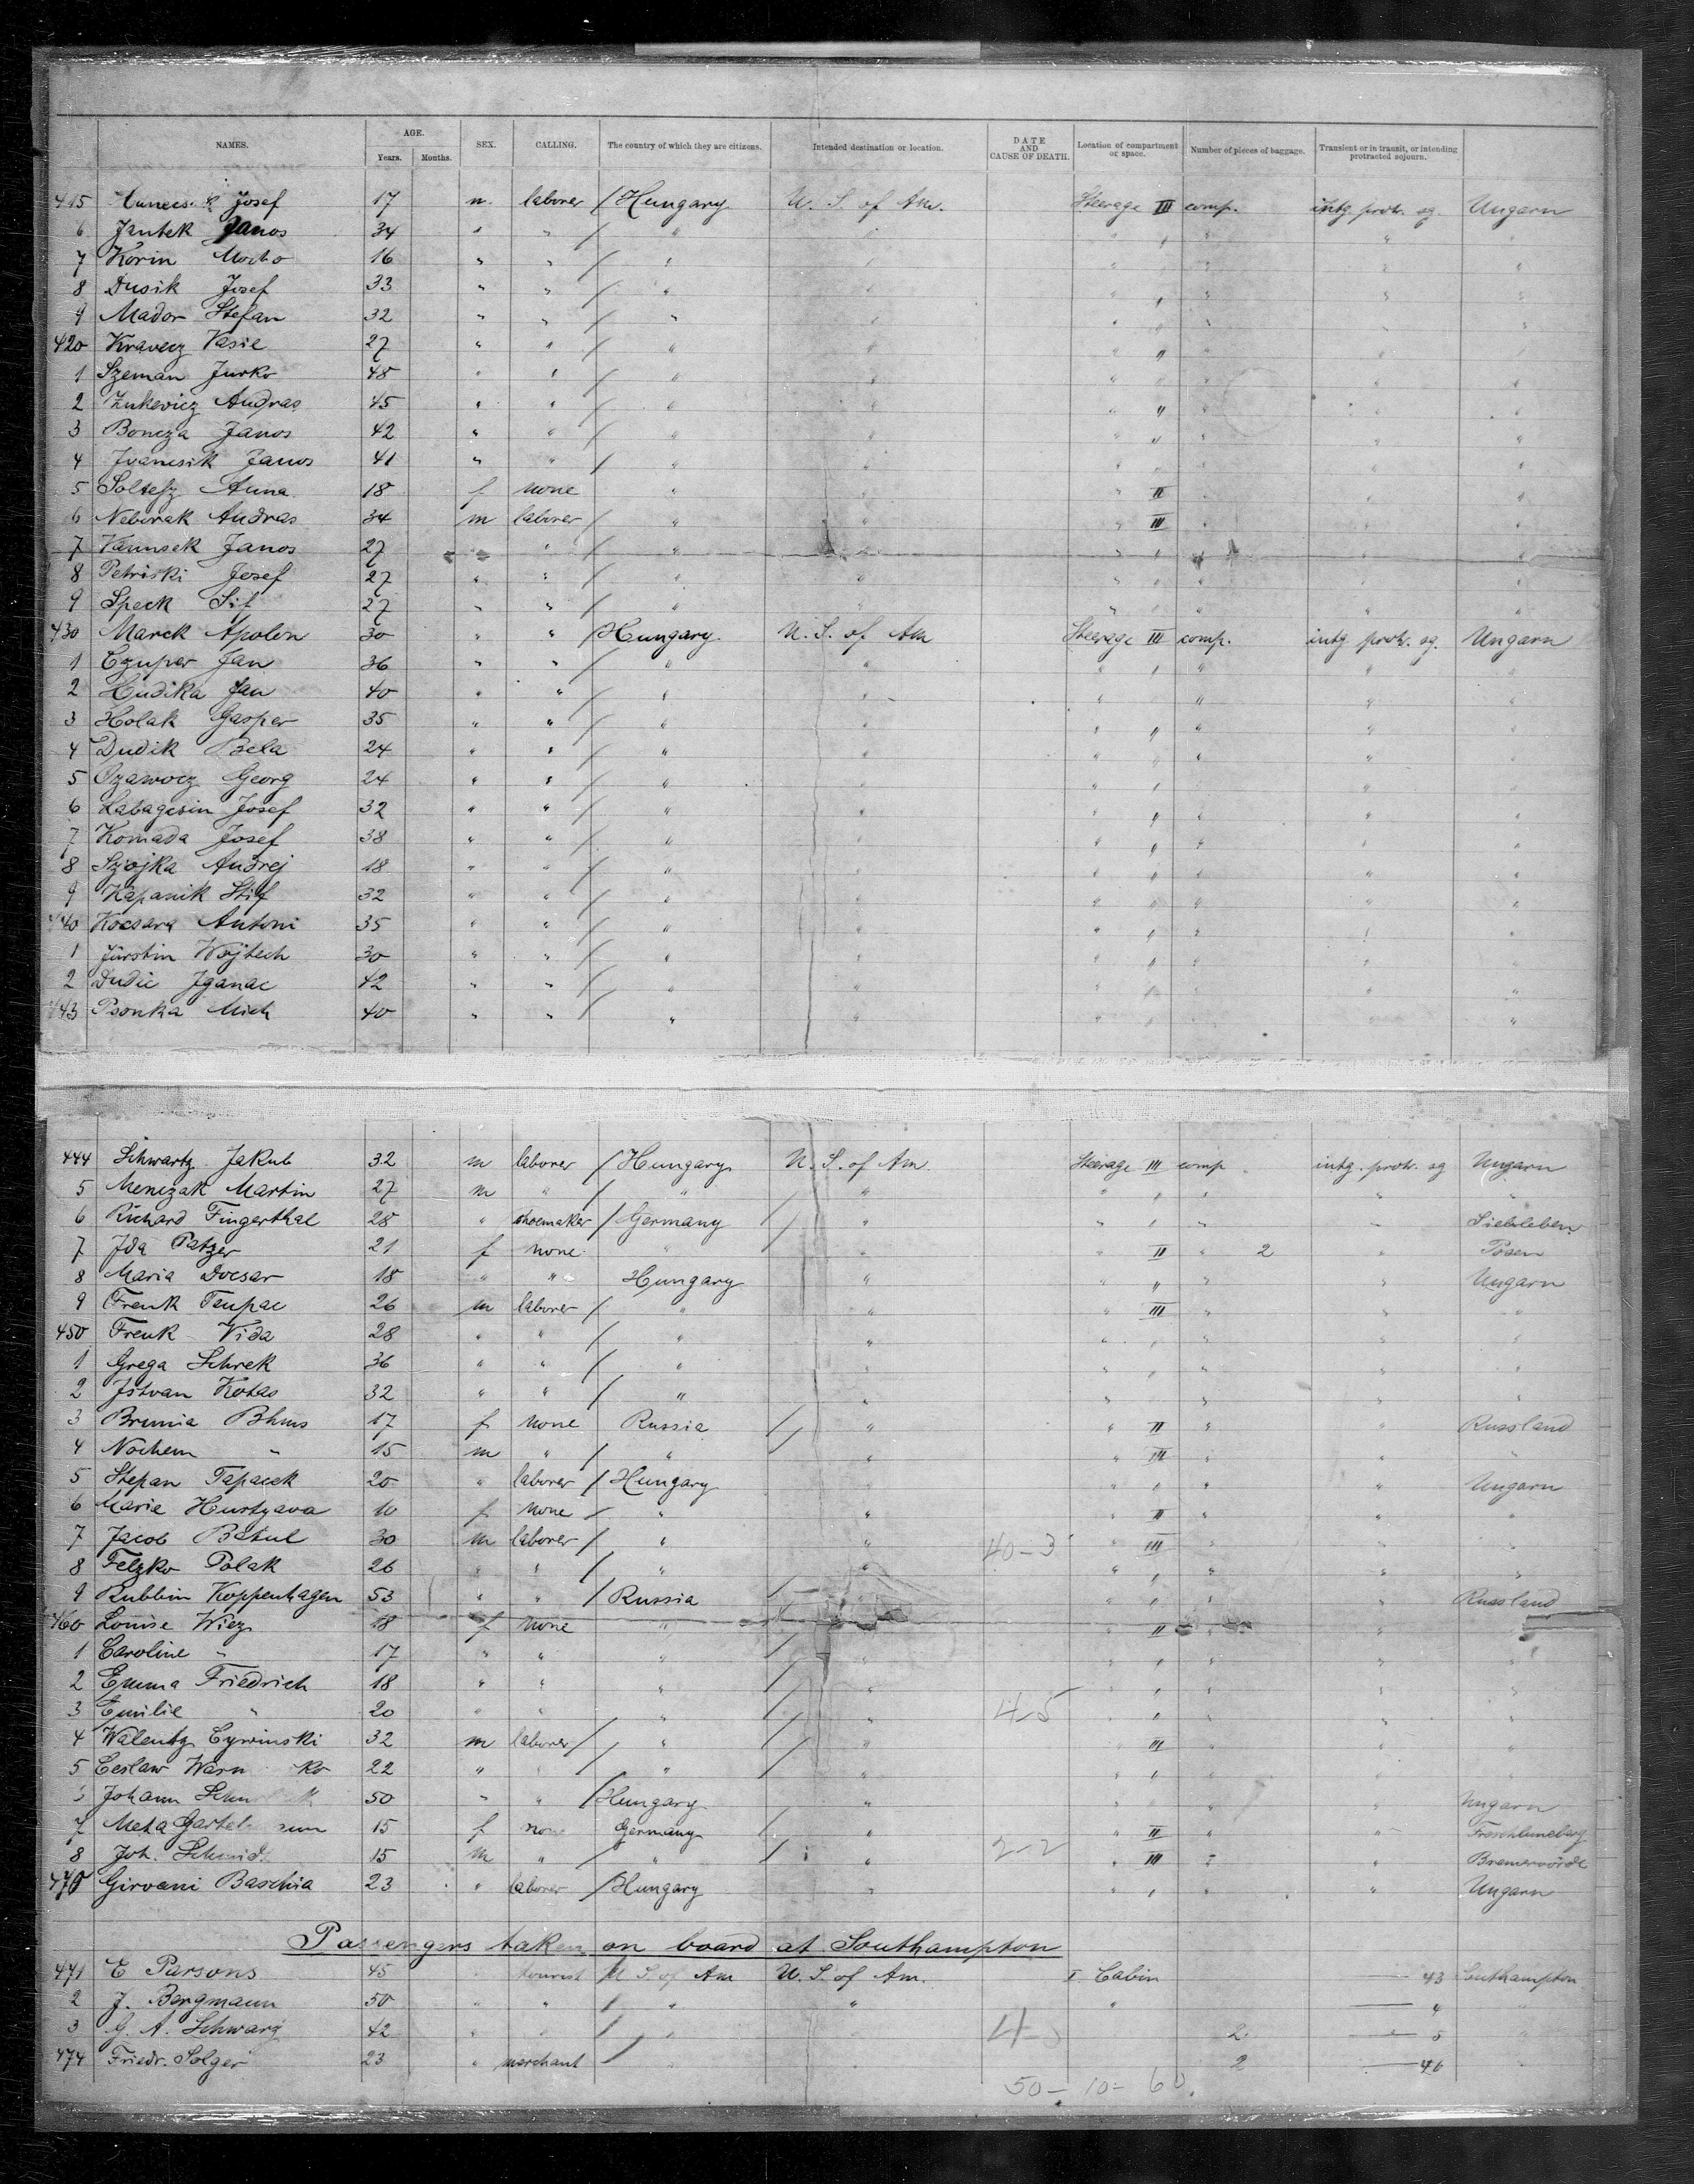 NAMES. AGE. Years. Months. SEX. CALLING. The country of which they are citizens. Intended destination or location. DATE AND CAUSE OF DEATH. Location of compartment or space. Number of pieces of baggage. Transient or in transit, or intending protracted sojourn.
415 Josef 17 m. laborer / Hungary U. S. of Am. Steerage III comp. intg. protr. sg. Ungarn
6 Jantek Janos 34 " " / " " " " " " "
7 Korin 16 " " / " " " " " " "
8 Dusik Josef 33 " " / " " " " " " "
9 Mador Stefan 32 " " / " " " " " " "
420 Kravecz Vasie 27 " " / " " " " " " "
1 Szeman Jurko 48 " " / " " " " " " "
2 Zukevicz Andras 45 " " / " " " " " " "
3 Boncza Janos 42 " " / " " " " " " "
4 Ivancsik Janos 41 " " / " " " " " " "
5 Soltesz Anna 18 f none " " " II " " "
6 Neborak Andras 34 m laborer / " " " III " " "
7 Janos 27 " " / " " " " " " "
8 Petriski Josef 27 " " / " " " " " " "
9 Speck Sif 27 " " / " " " " " " "
430 Marek Apolon 30 " " / Hungary U. S. of Am Steerage III comp. intg protr. sg. Ungarn
1 Czuper Jan 36 " " / " " " " " " "
2 Hudika Jan 40 " " / " " " " " " "
3 Holak Gasper 35 " " / " " " " " " "
4 Dudik Bela 24 " " / " " " " " " "
5 Ozawocz Georg 24 " " / " " " " " " "
6 Labagesin Josef 32 " " / " " " " " " "
7 Komada Josef 38 " " / " " " " " " "
8 Szojka Andrej 18 " " / " " " " " " "
9 Kapanik Stif 32 " " / " " " " " " "
440 Kocsara Antoni 35 " " / " " " " " " "
1 Jurstin Wojtech 30 " " / " " " " " " "
2 Dudic Iganac 42 " " / " " " " " " "
443 Psonka Mich 40 " " / " " " " " " "
444 Schwartz Jakub 32 m laborer / Hungary U. S. of Am. Steerage III comp. intg. protr. sg Ungarn
5 Menczak Martin 27 m " / " " " " " " "
6 Richard Fingerthal 28 " shoemaker / Germany / " " " " " Siebleben
7 Ida Patzer 21 f none " " " II " 2 " Posen
8 Maria Docsar 18 " " Hungary " " " " " Ungarn
9 Frenk Taupac 26 m laborer / " " " III " " "
450 Frenk Vida 28 " " / " " " " " " "
1 Grega Schrek 36 " " / " " " " " " "
2 Istvan Kotas 32 " " / " " " " " " "
3 Brunia Blums 17 f none Russia / " " II " " Russland
4 Nochem " 15 m " / " / " " III " " "
5 Stepan Tapacek 20 " laborer / Hungary " " " " " Ungarn
6 Marie Hurtyava 10 f none / " " " II " " "
7 Jacob Betul 30 m laborer / " " 40-3 " III " " "
8 Felzko Polak 26 " " / " " " " " " "
9 Rubbin Koppenhagen 53 " " / Russia / " " " " " Russland
460 Louise Wiez 18 f none " / " " II " " "
1 Caroline " 17 " " " / " " " " " "
2 Emma Friedrich 18 " " " / " " " " " "
3 Emilie " 20 " " " / " 4-5 " " " " "
4 Walenty Cywinski 32 m laborer / " / " " III " " "
5 Ceslaw 22 " " / " / " " " " " "
Johann 50 " " / Hungary " " " " " Ungarn
7 Meta 15 f none Germany / " " II " "
8 Joh. Schmidt 15 m " " / " 2-2 " III " " Bremervörde
470 Girvani Baschia 23 " laborer / Hungary " " " " " Ungarn
Passengers taken on board at Southampton
471 E Parsons 45 tourist U S. of Am U. S. of Am. I. Cabin 43 Southampton
2 J. Bergmann 50 " " / " " " 4 "
3 G. A. Schwarz 42 " " / " 2 5 "
474 Friedr. Solger 23 " merchant / " 2 46 "
50- 10- 60.